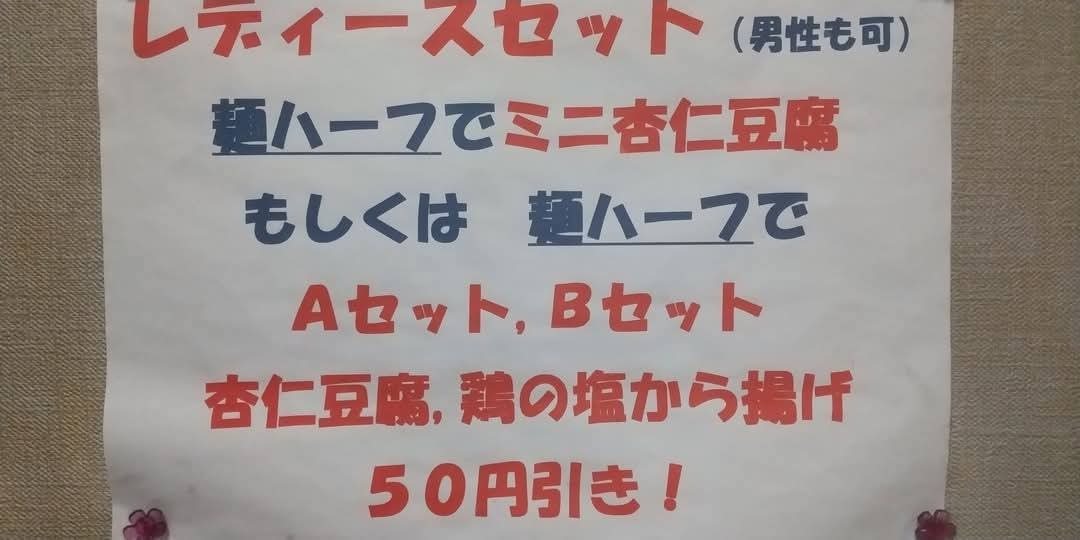 レディースセット（男性も可）
麺ハーフでミニ杏仁豆腐
もしくは　麺ハーフで
Aセット,Bセット
杏仁豆腐,鶏の塩から揚げ
５０円引き！